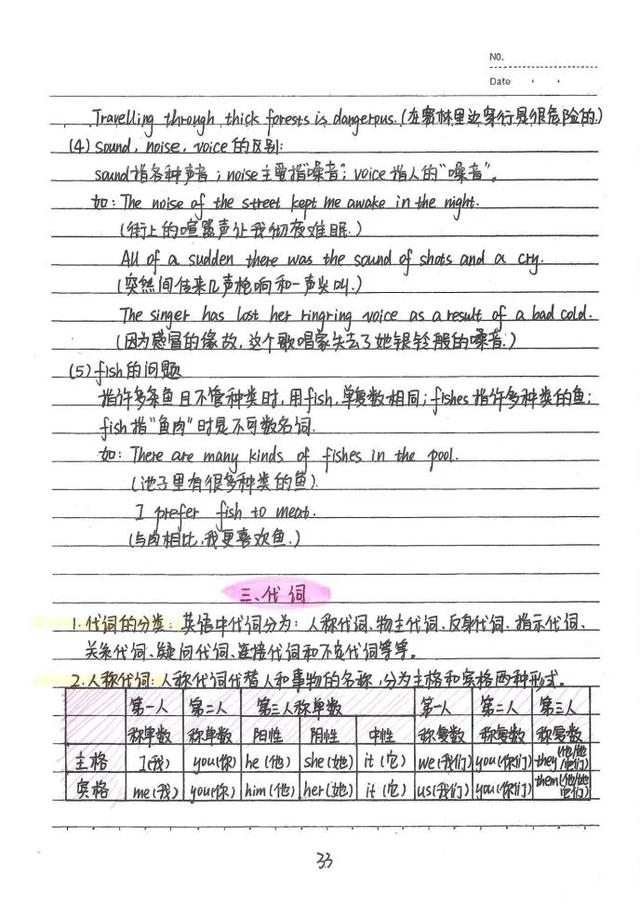 NO.
Date
Travelling through thick forests is dangerous.(在密林里边穿行是很危险的.)
(4) sound, noise, voice 的区别:
sound 指各种声音；noise 主要指"噪音"；voice 指人的"嗓音"。
如: The noise of the street kept me awake in the night.
(街上的喧嚣声让我彻夜难眠.)
All of a sudden there was the sound of shots and a cry.
(突然间传来几声枪响和一声尖叫.)
The singer has lost her ringring voice as a result of a bad cold.
(因为感冒的缘故,这个歌唱家失去了她银铃般的嗓音.)
(5) fish 的问题
指许多条鱼且不管种类时,用fish,单复数相同；fishes 指许多种类的鱼；
fish 指"鱼肉"时是不可数名词.
如: There are many kinds of fishes in the pool.
(池子里有很多种类的鱼).
I prefer fish to meat.
(与肉相比,我更喜欢鱼.)
三、代词
1. 代词的分类: 英语中代词分为: 人称代词、物主代词、反身代词、指示代词、
关系代词、疑问代词、连接代词和不定代词等等。
2. 人称代词: 人称代词代替人和事物的名称,分为主格和宾格两种形式。
第一人 第二人 第三人称单数 第一人 第二人 第三人
称单数 称单数 阳性 阴性 中性 称复数 称复数 称复数
主格 I(我) you(你) he(他) she(她) it(它) we(我们) you(你们) they(他/她/它们)
宾格 me(我) you(你) him(他) her(她) it(它) us(我们) you(你们) them(他/她/它们)
33